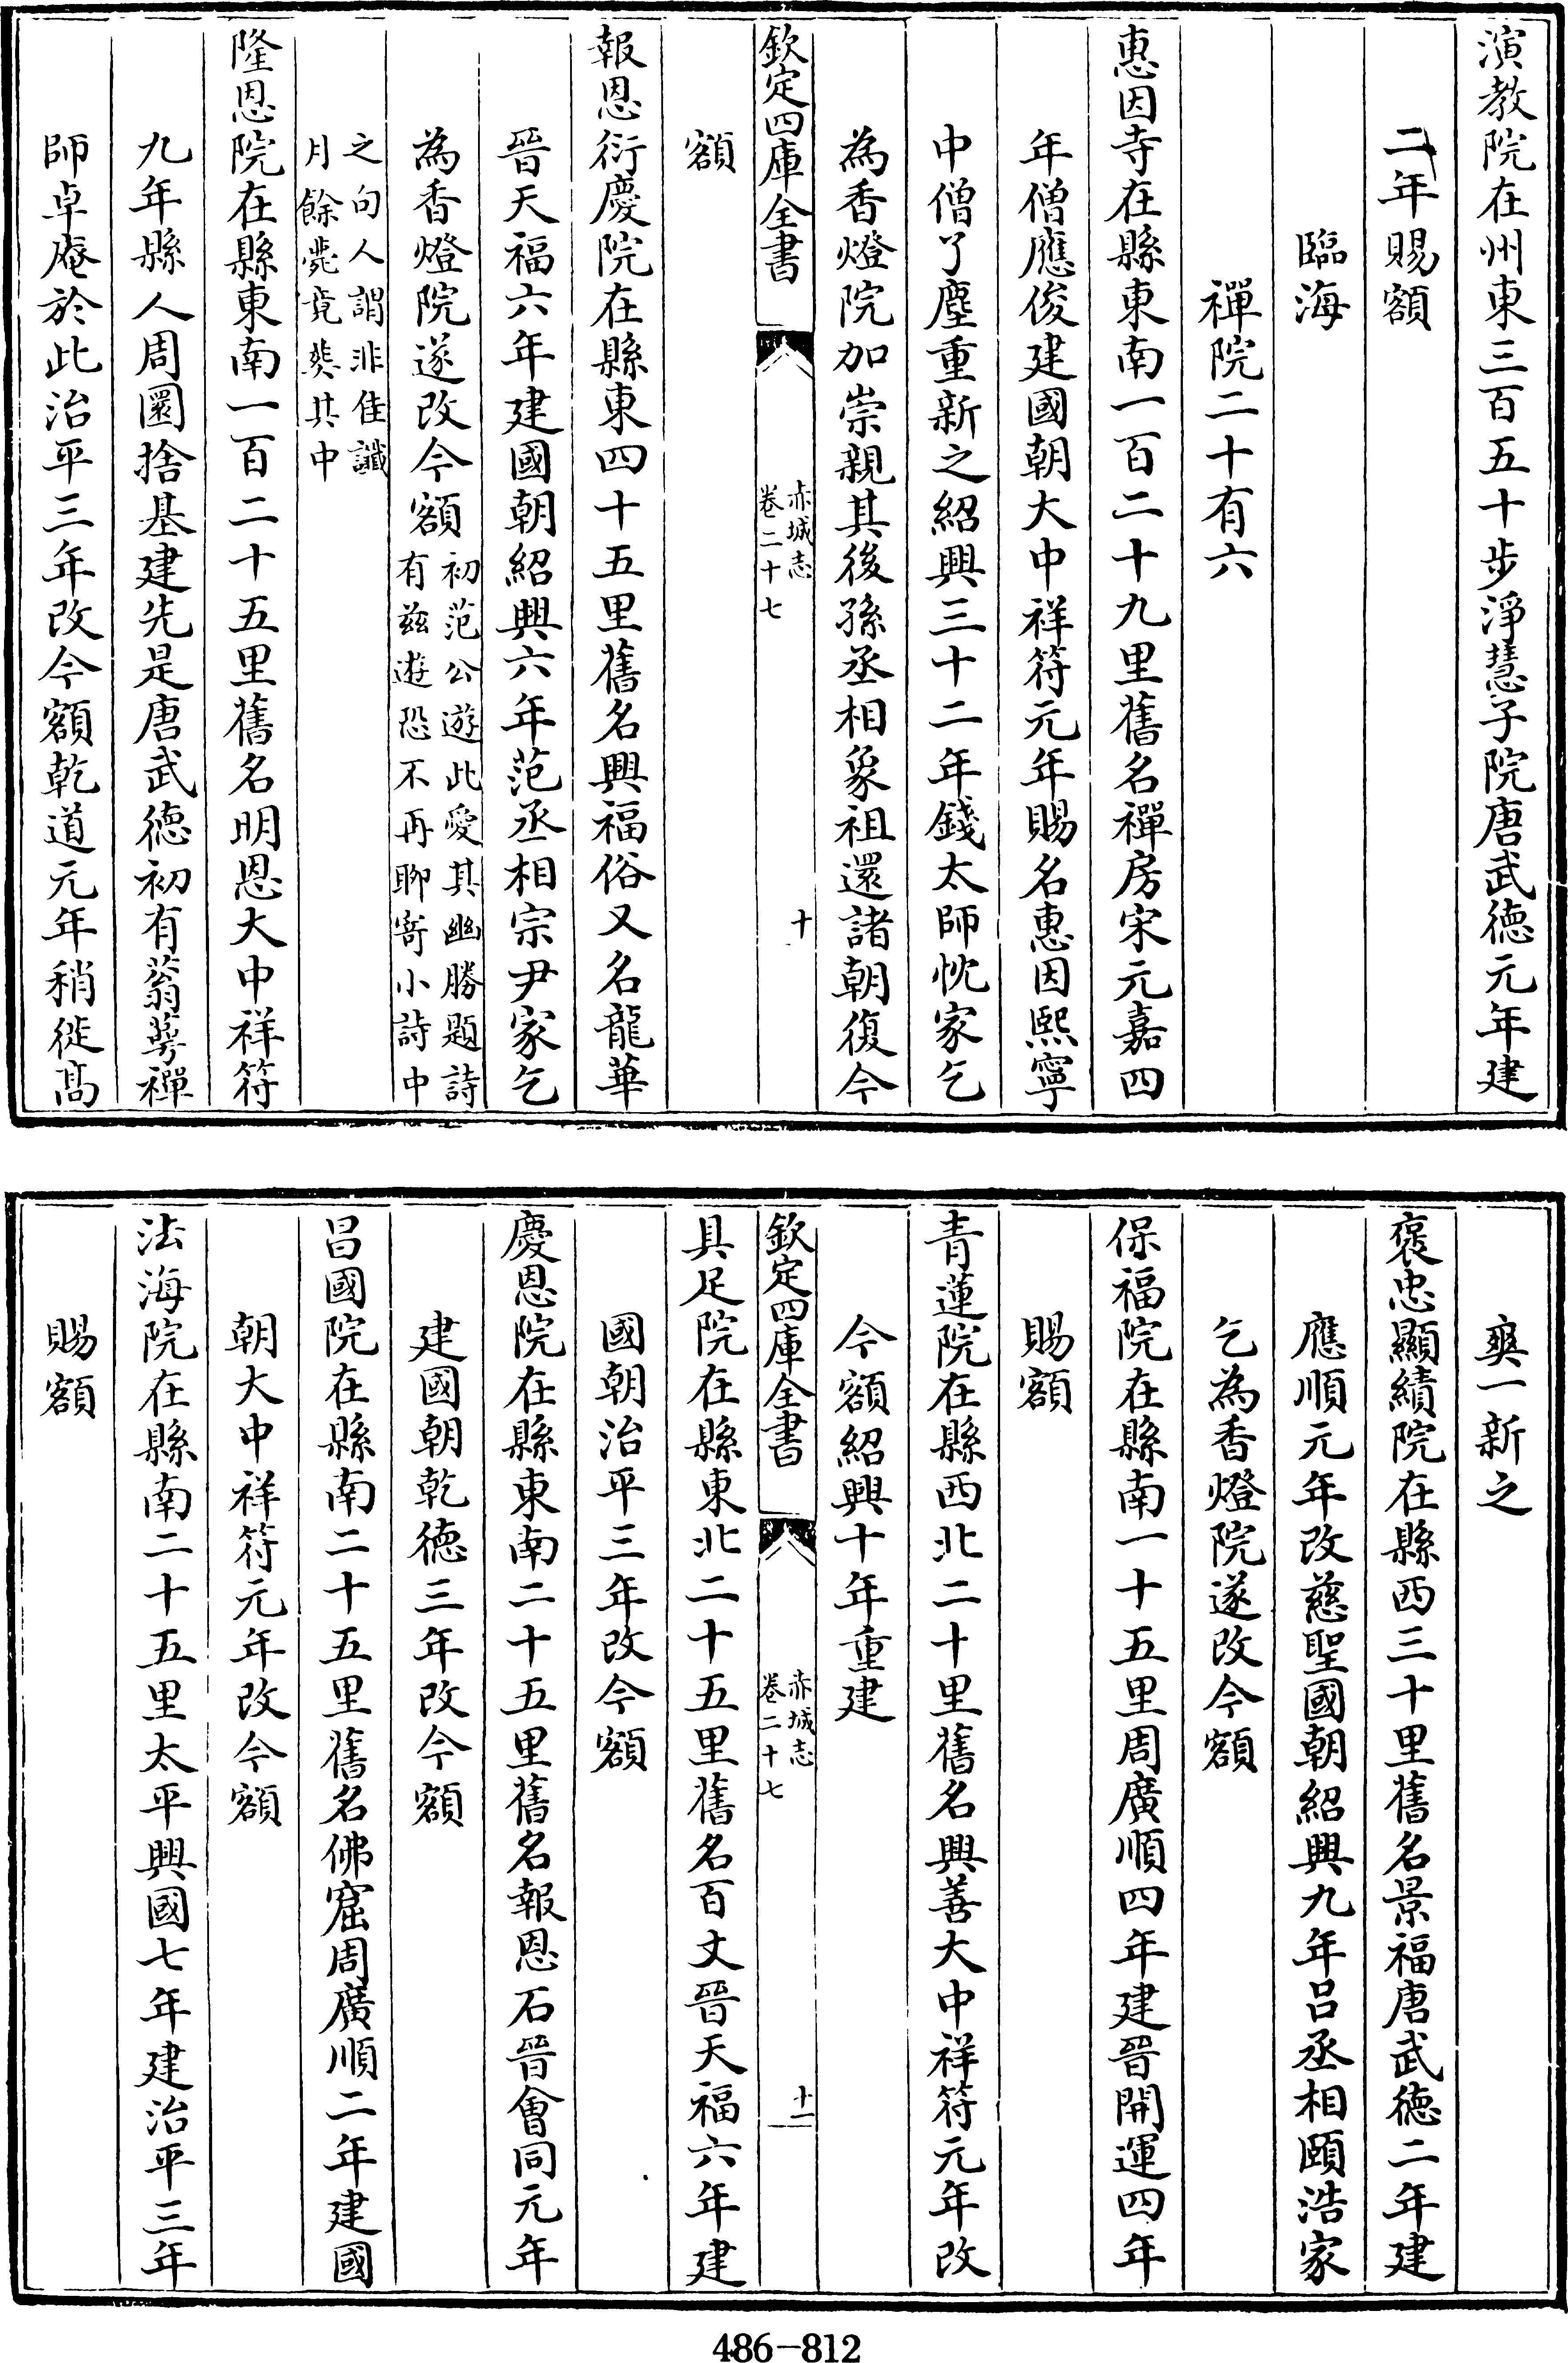 演教院在州東三百五十步淨慧子院唐武德元年建
二年賜額
臨海
禪院二十有六
惠因寺在縣東南一百二十九里舊名禪房宋元嘉四
年僧應俊建國朝大中祥符元年賜名惠因熙寧
中僧了塵重新之紹興三十二年錢太師忱家乞
為香燈院加崇親其後孫丞相象祖還諸朝復今
欽定四庫全書
赤城志
卷二十七
十
額
報恩衍慶院在縣東四十五里舊名興福俗又名龍華
晉天福六年建國朝紹興六年范丞相宗尹家乞
為香燈院遂改今額
初范公遊此愛其幽勝題詩
有兹遊恐不再聊寄小詩中
之句人謂非佳讖
月餘薨竟葬其中
隆恩院在縣東南一百二十五里舊名明恩大中祥符
九年縣人周圜捨基建先是唐武德初有蓊蕚禪
師卓庵於此治平三年改今額乾道元年稍徙高
爽一新之
褒忠顯績院在縣西三十里舊名景福唐武德二年建
應順元年改慈聖國朝紹興九年呂丞相頤浩家
乞為香燈院遂改今額
保福院在縣南一十五里周廣順四年建晉開運四年
賜額
青蓮院在縣西北二十里舊名興善大中祥符元年改
今額紹興十年重建
欽定四庫全書
赤城志
卷二十七
十一
具足院在縣東北二十五里舊名百丈晉天福六年建
國朝治平三年改今額
慶恩院在縣東南二十五里舊名報恩石晉會同元年
建國朝乾德三年改今額
昌國院在縣南二十五里舊名佛窟周廣順二年建國
朝大中祥符元年改今額
法海院在縣南二十五里太平興國七年建治平三年
賜額
486-812